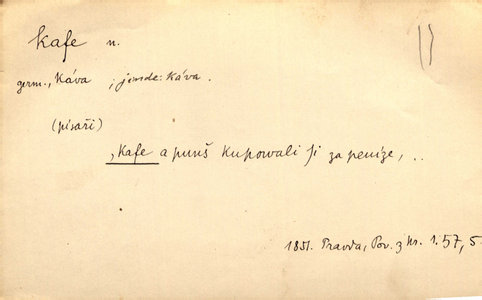 kafe n.
germ., káva ; jemde: káva.
(písaři)
„kafe a punš kupovali ji za peníze, ..
1851. Pravda, Pov. z kr. 1. 57, 5